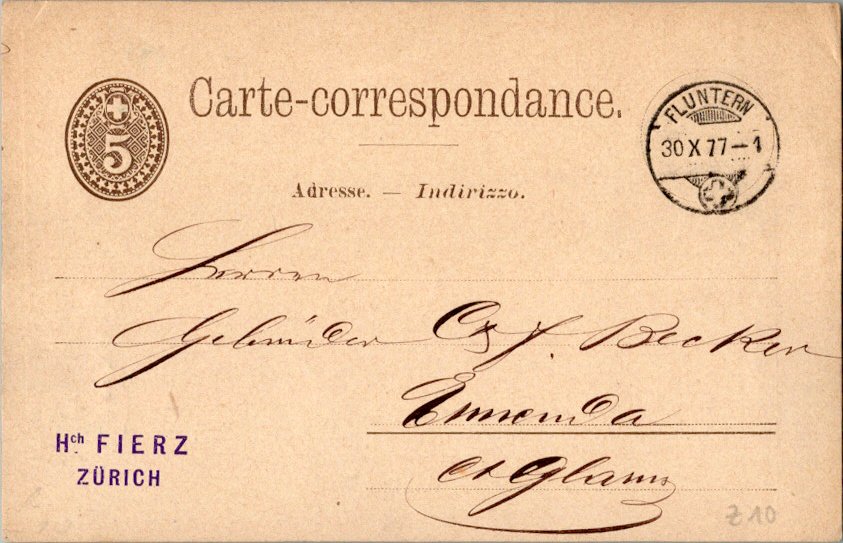 5
Carte-correspondance.
FLUNTERN
30 X 77-1
Adresse. — Indirizzo.
Herren
Gebrüder C & J. Becker
Ennenda
Ct Glarus
Hch FIERZ
ZÜRICH
Z 10